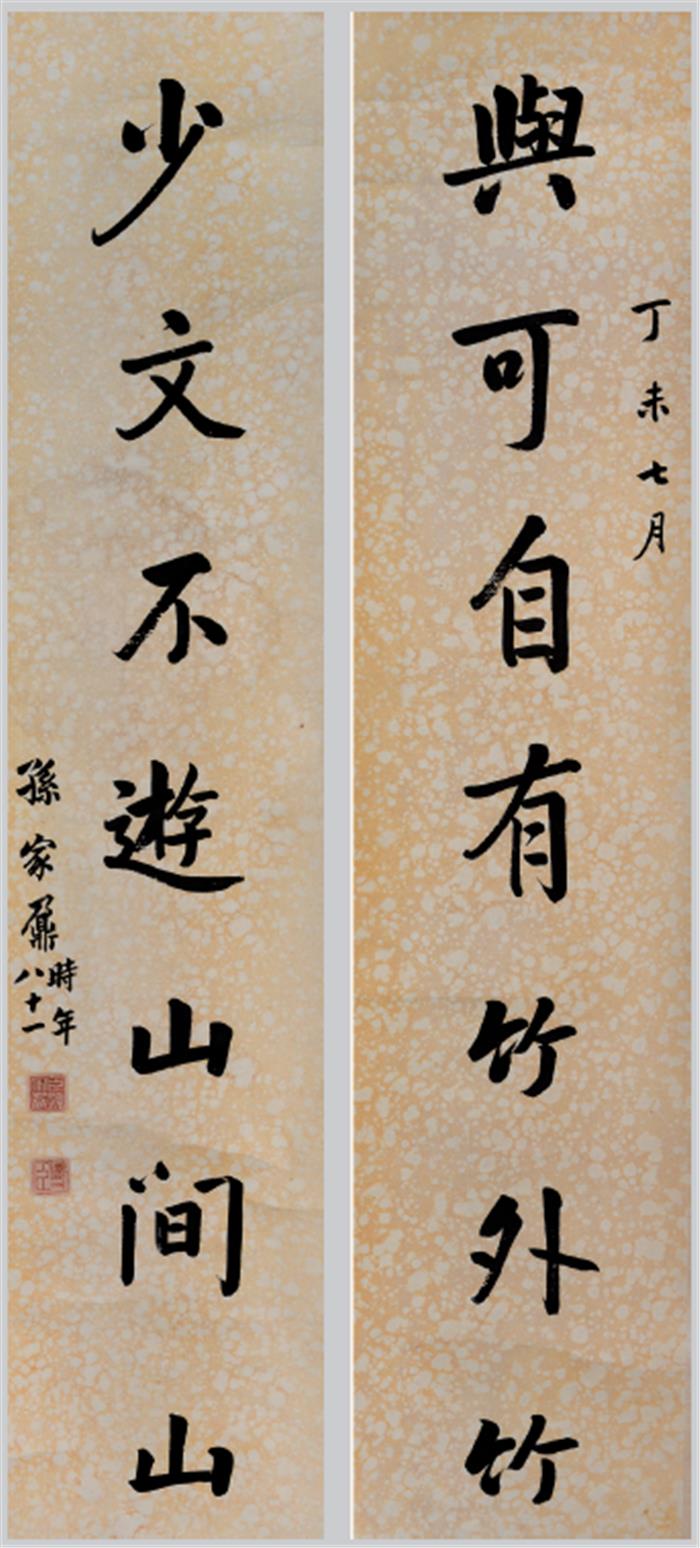 丁未七月
與可自有竹外竹
少文不遊山间山
孫家鼐時年
八十一